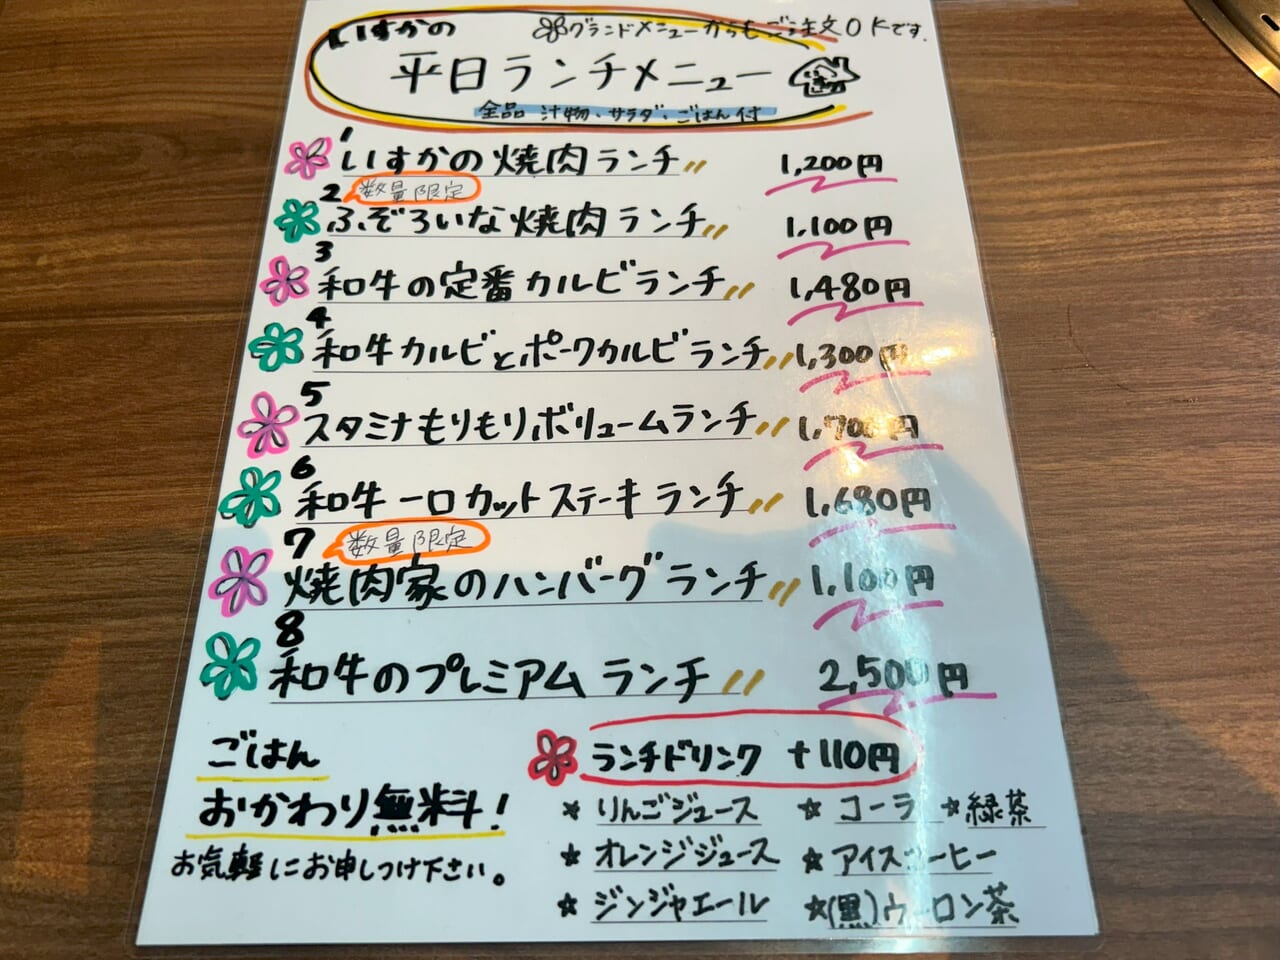 いすかの
グランドメニューからもご注文OKです.
平日ランチメニュー
全品 汁物、サラダ、ごはん付
1 いすかの焼肉ランチ 1,200円
2 数量限定
ふぞろいな焼肉ランチ 1,100円
3 和牛の定番カルビランチ 1,480円
4 和牛カルビとポークカルビランチ 1,300円
5 スタミナもりもりボリュームランチ 1,700円
6 和牛一口カットステーキランチ 1,680円
7 数量限定
焼肉家のハンバーグランチ 1,100円
8 和牛のプレミアムランチ 2,500円
ごはん
おかわり無料!
お気軽にお申しつけ下さい。
ランチドリンク +110円
★りんごジュース ★コーラ ★緑茶
★オレンジジュース ★アイスコーヒー
★ジンジャエール ★(黒)ウーロン茶